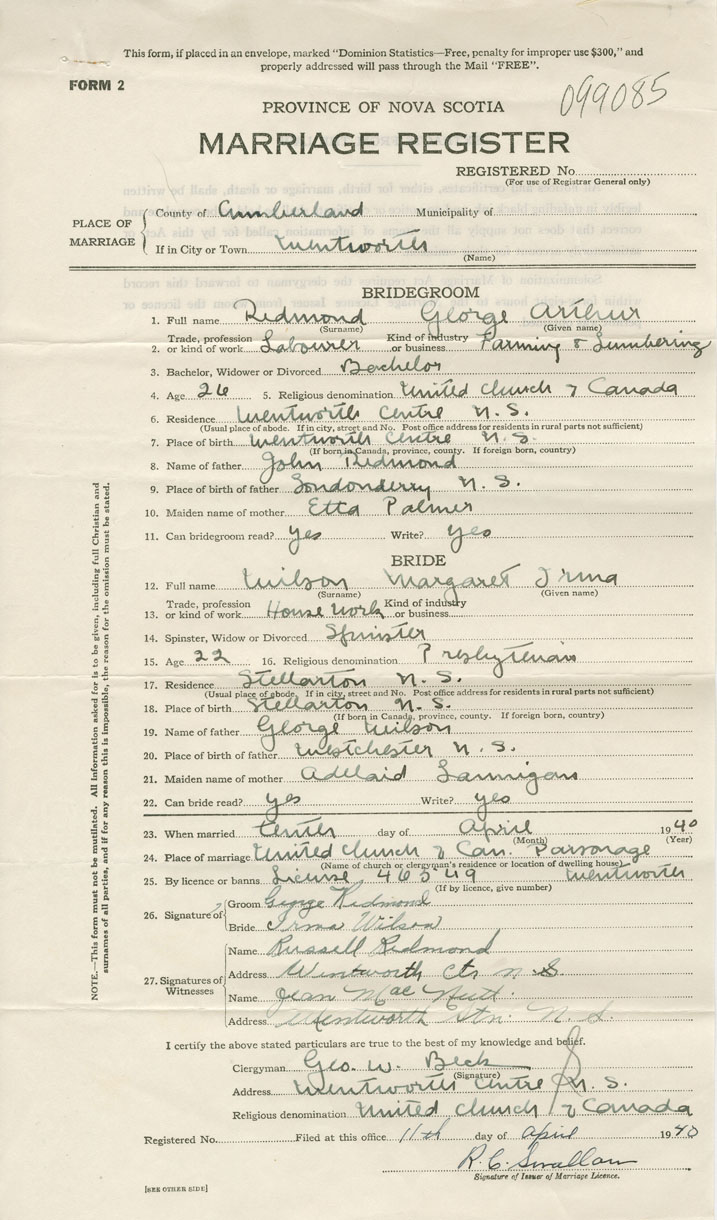 This form, if placed in an envelope, marked "Dominion Statistics—Free, penalty for improper use $300," and
properly addressed will pass through the Mail "FREE".
FORM 2
099085
PROVINCE OF NOVA SCOTIA
MARRIAGE REGISTER
REGISTERED No.
(For use of Registrar General only)
PLACE OF MARRIAGE
County of Cumberland Municipality of
If in City or Town Wentworth
(Name)
BRIDEGROOM
1. Full name Redmond George Arthur
(Surname) (Given name)
2. Trade, profession or kind of work Labourer Kind of industry or business Farming & Lumbering
3. Bachelor, Widower or Divorced Bachelor
4. Age 26 5. Religious denomination United Church of Canada
6. Residence Wentworth Centre N.S.
(Usual place of abode. If in city, street and No. Post office address for residents in rural parts not sufficient)
7. Place of birth Wentworth Centre N.S.
(If born in Canada, province, county. If foreign born, country)
8. Name of father John Redmond
9. Place of birth of father Londonderry N.S.
10. Maiden name of mother Etta Palmer
11. Can bridegroom read? yes Write? yes
BRIDE
12. Full name Wilson Margaret Irma
(Surname) (Given name)
13. Trade, profession or kind of work House work Kind of industry or business
14. Spinster, Widow or Divorced Spinster
15. Age 22 16. Religious denomination Presbyterian
17. Residence Stellarton N.S.
(Usual place of abode. If in city, street and No. Post office address for residents in rural parts not sufficient)
18. Place of birth Stellarton N.S.
(If born in Canada, province, county. If foreign born, country)
19. Name of father George Wilson
20. Place of birth of father Westchester N.S.
21. Maiden name of mother Adelaid Lannigan
22. Can bride read? yes Write? yes
23. When married tenth day of April 1940
(Month) (Year)
24. Place of marriage United Church of Can. Parsonage
(Name of church or clergyman's residence or location of dwelling house)
25. By licence or banns License 46549 Wentworth
(If by licence, give number)
26. Signature of
Groom George Redmond
Bride Irma Wilson
27. Signatures of Witnesses
Name Russell Redmond
Address Wentworth Ctr N.S.
Name Jean MacNutt
Address Wentworth Stn. N.S.
I certify the above stated particulars are true to the best of my knowledge and belief.
Clergyman Geo. W. Beck
(Signature)
Address Wentworth Centre N.S.
Religious denomination United Church of Canada
Registered No. Filed at this office 11th day of April 1940
R.C. Swallow
Signature of Issuer of Marriage Licence.
[SEE OTHER SIDE]
NOTE.—This form must not be mutilated. All information asked for is to be given, including full Christian and
surnames of all parties, and if for any reason this is impossible, the reason for the omission must be stated.